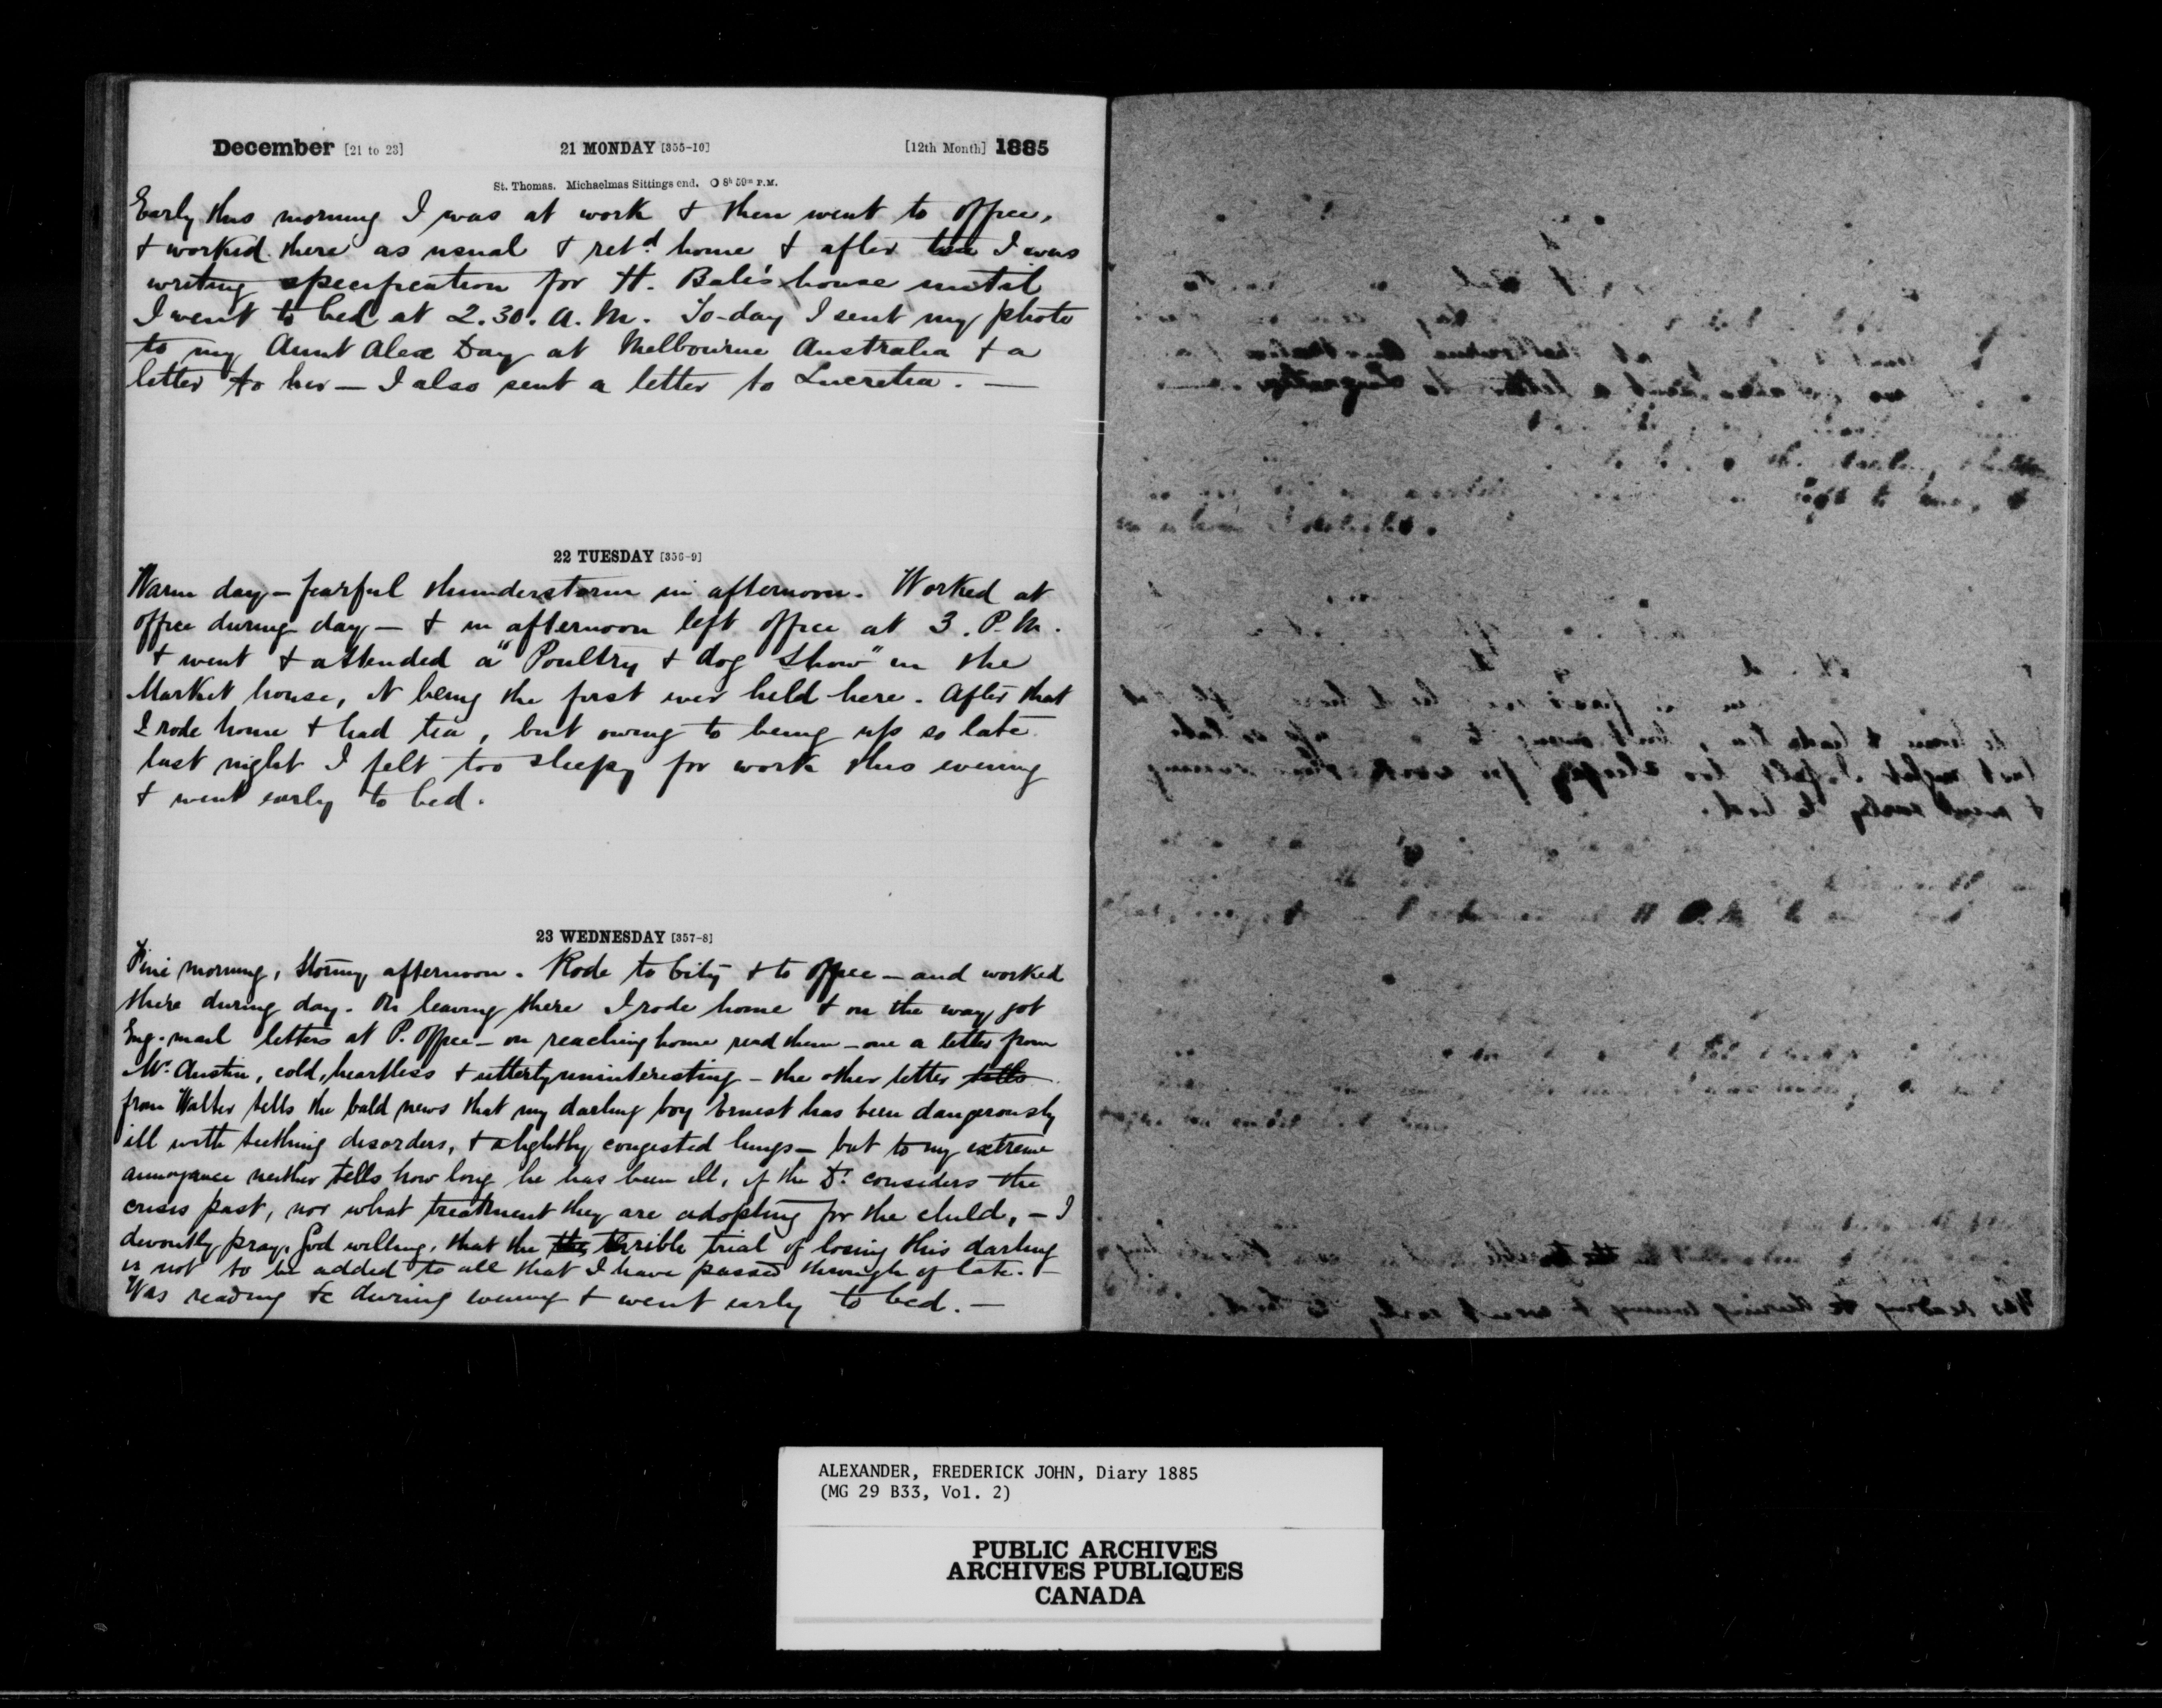 December [21 to 23] 21 MONDAY [355-10] [12th Month] 1885
St. Thomas. Michaelmas Sittings end. O 8h 59m P.M.
Early this morning I was at work & then went to office,
& worked there as usual & retd home & after tea I was
writing specification for H. Bale's house until
I went to bed at 2.30. A.M. To-day I sent my photo
to my Aunt Alex Day at Melbourne Australia & a
letter to her — I also sent a letter to Lucretia. —
22 TUESDAY [356-9]
Warm day — fearful thunderstorm in afternoon. Worked at
office during day — & in afternoon left office at 3. P.M.
& went & attended a "Poultry & dog show" in the
Market house, it being the first ever held here. After that
I rode home & had tea, but owing to being up so late
last night I felt too sleepy for work this evening
& went early to bed.
23 WEDNESDAY [357-8]
Fine morning, stormy afternoon. Rode to City & to office — and worked
there during day. On leaving there I rode home & on the way got
Eng. mail letters at P. Office — on reaching home read them — one a letter from
Mr. Austin, cold, heartless & utterly uninteresting — the other letter tells
from Walter tells the bald news that my darling boy Ernest has been dangerously
ill with teething disorders, & slightly congested lungs — but to my extreme
annoyance neither tells how long he has been ill, if the Dr. considers the
crisis past, nor what treatment they are adopting for the child, — I
devoutly pray, God willing, that the this terrible trial of losing this darling
is not to be added to all that I have passed through of late. —
Was reading &c during evening & went early to bed. —
ALEXANDER, FREDERICK JOHN, Diary 1885
(MG 29 B33, Vol. 2)
PUBLIC ARCHIVES
ARCHIVES PUBLIQUES
CANADA